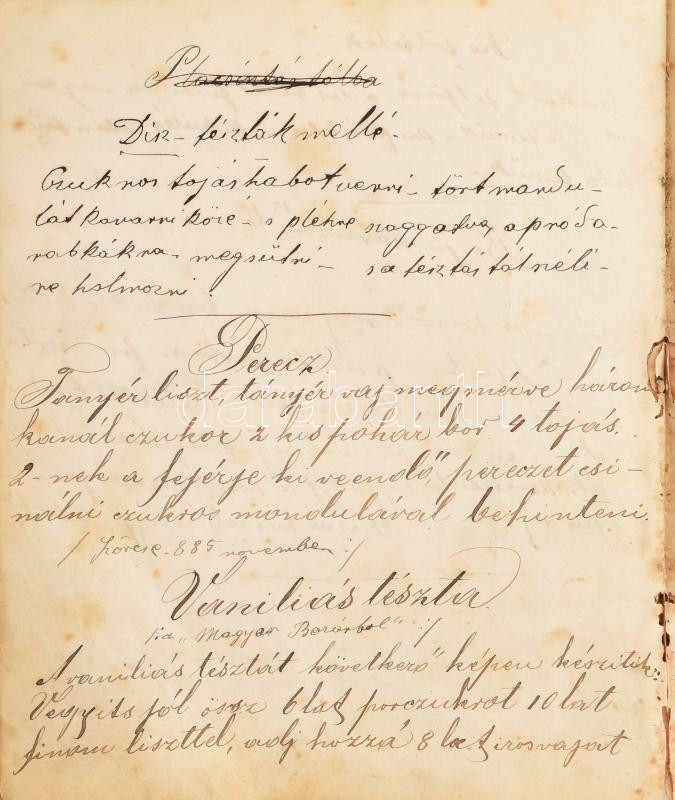 Disz-tészták mellé.
Czukros tojáshabot verni - tört mandu-
lát kavarni közé - s pléhre szaggatva, apró da-
rabkákra - megsütni - s a tésztás tál széli-
re halmozni.
Perecz
Tanyér liszt, tányér vaj megmérve három
kanál czukor 2 kis pohár bor 4 tojás.
2-nek a fejérje ki veendő, pereczet csi-
nálni czukros mondulával behinteni.
/ 885 november :/
Vaniliás tészta.
"Magyar Bazárbol" :/
A vaniliás tésztát következő képen készitik:
Vegyits jól össz 6 lat porczukrot 10 lat
finom liszttel, adj hozzá 8 lat irosvajat
darabanth